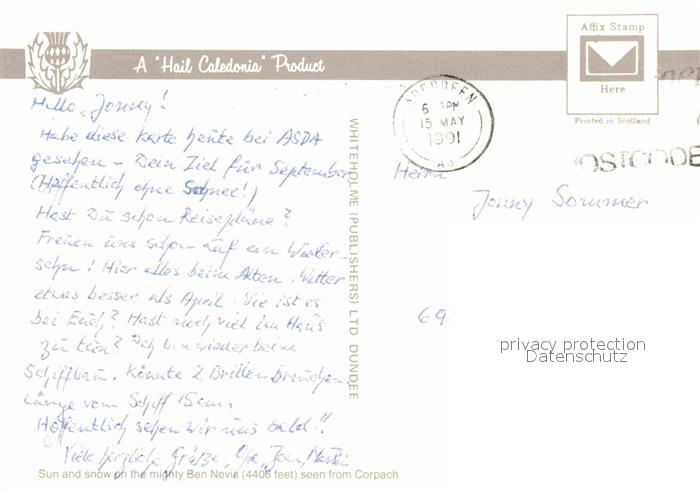 A "Hail Caledonia" Product
Affix Stamp
Here
Printed in Scotland
ABERDEEN
6 PM
15 MAY
1991
A3
POSTCODE
Hallo Jonny!
Habe diese Karte heute bei ASDA
gesehen – Dein Ziel für September
(Hoffentlich ohne Schnee!)
Hast Du schon Reisepläne?
Freuen uns schon auf ein Wieder-
sehn! Hier alles beim Alten. Wetter
etwas besser als April. Wie ist es
bei Euch? Hast noch viel im Haus
zu tun? Ich bin wieder beim
Schiffbau. Könnte 2 Brillen brauchen.
Länge vom Schiff 15cm.
Hoffentlich sehen wir uns bald!!
Viele herzliche Grüße, Jean,
WHITEHOLME (PUBLISHERS) LTD DUNDEE
Herrn
Jonny Sommer
69
privacy protection
Datenschutz
Sun and snow on the mighty Ben Nevis (4406 feet) seen from Corpach